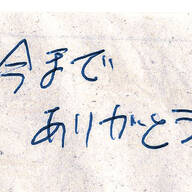 今まで
ありがとう